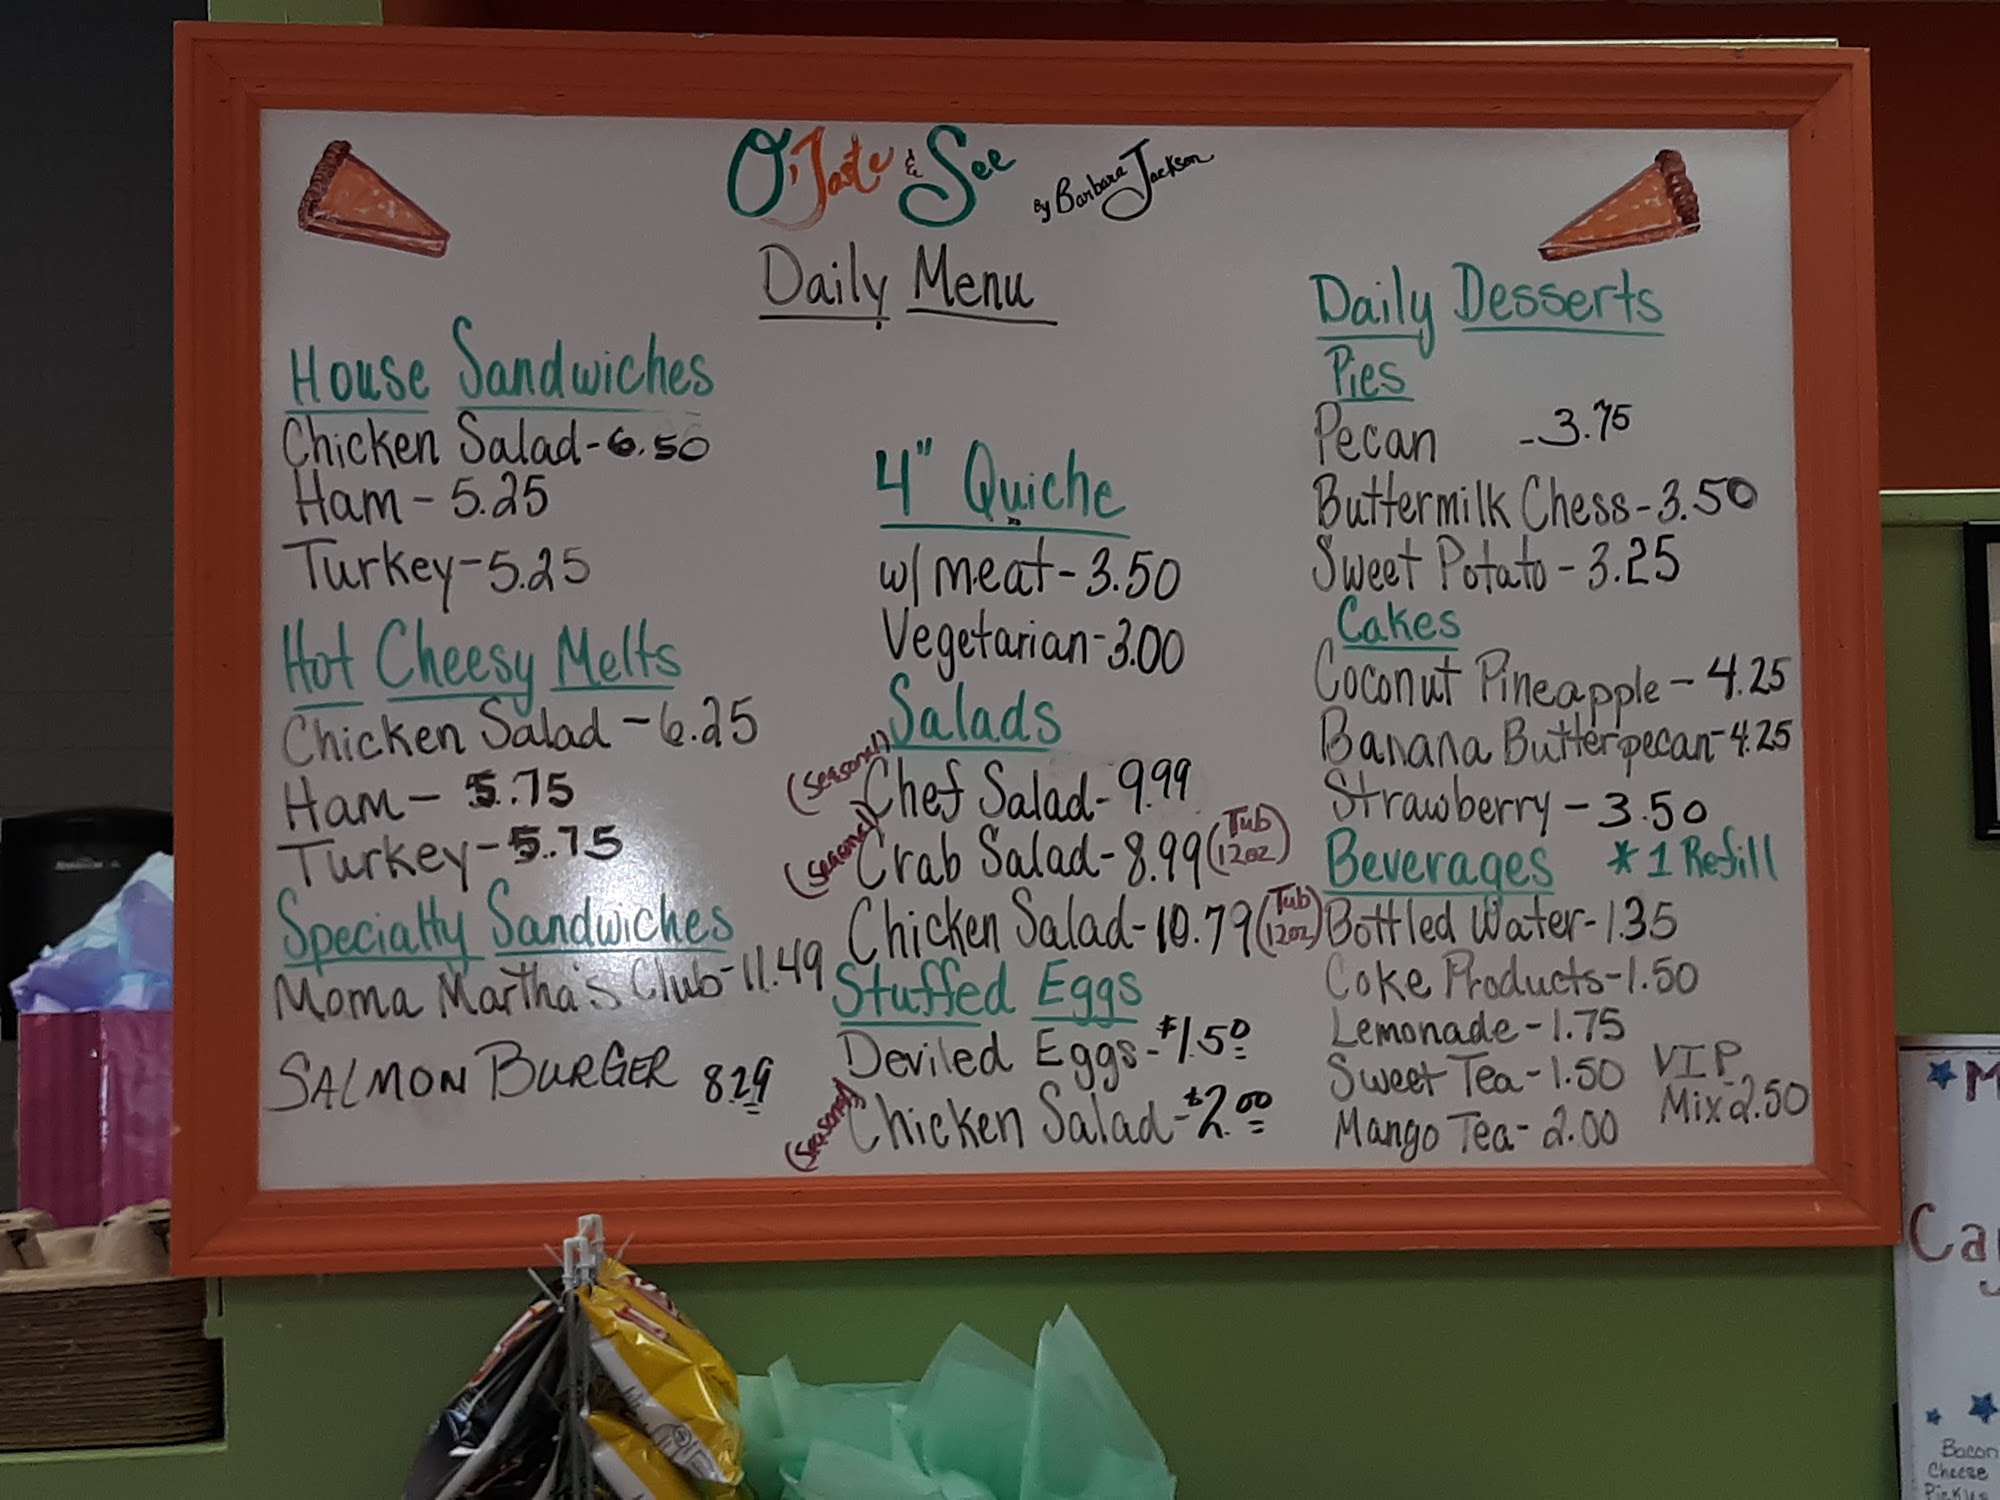 O' Taste & See By Barbara Jackson
Daily Menu
House Sandwiches
Chicken Salad-6.50
Ham - 5.25
Turkey-5.25
Hot Cheesy Melts
Chicken Salad - 6.25
Ham - 5.75
Turkey - 5.75
Specialty Sandwiches
Moma Martha's Club-11.49
SALMON BURGER 8.29
4" Quiche
w/ meat - 3.50
Vegetarian-3.00
Salads
(seasonal) Chef Salad - 9.99
(seasonal) Crab Salad - 8.99 (Tub 12oz)
Chicken Salad-10.79 (Tub 12oz)
Stuffed Eggs
Deviled Eggs - $1.50
(seasonal) Chicken Salad - $2.00
Daily Desserts
Pies
Pecan - 3.75
Buttermilk Chess - 3.50
Sweet Potato - 3.25
Cakes
Coconut Pineapple - 4.25
Banana Butterpecan - 4.25
Strawberry - 3.50
Beverages * 1 Refill
Bottled Water - 1.35
Coke Products - 1.50
Lemonade - 1.75
Sweet Tea - 1.50
Mango Tea - 2.00
VIP
Mix 2.50
M
Ca
Bacon
Cheese
Pickles